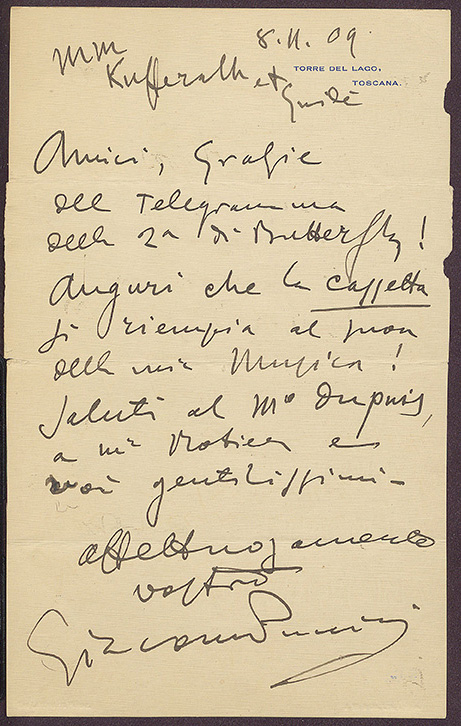 8.11.09
TORRE DEL LAGO,
TOSCANA.
MM
Kufferath et
Guidé
Amici, Grazie
del telegramma
della 2a di Butterfly!
Auguri che la cassetta
si riempia al suon
della mia Musica!
Saluti al Mo Dupuis,
a
voi gentilissimi -
affettuosamente
vostro
Giacomo Puccini